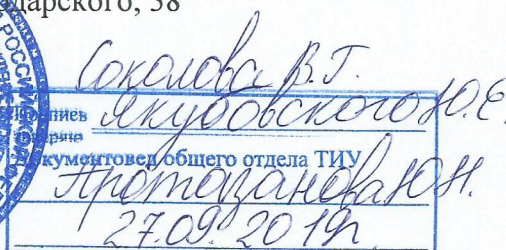 дарского, 38
Соколова В.Г.
Якубовского Ю.Е.
Документовед общего отдела ТИУ
Протозанова Ю.Н.
27.09.2019г